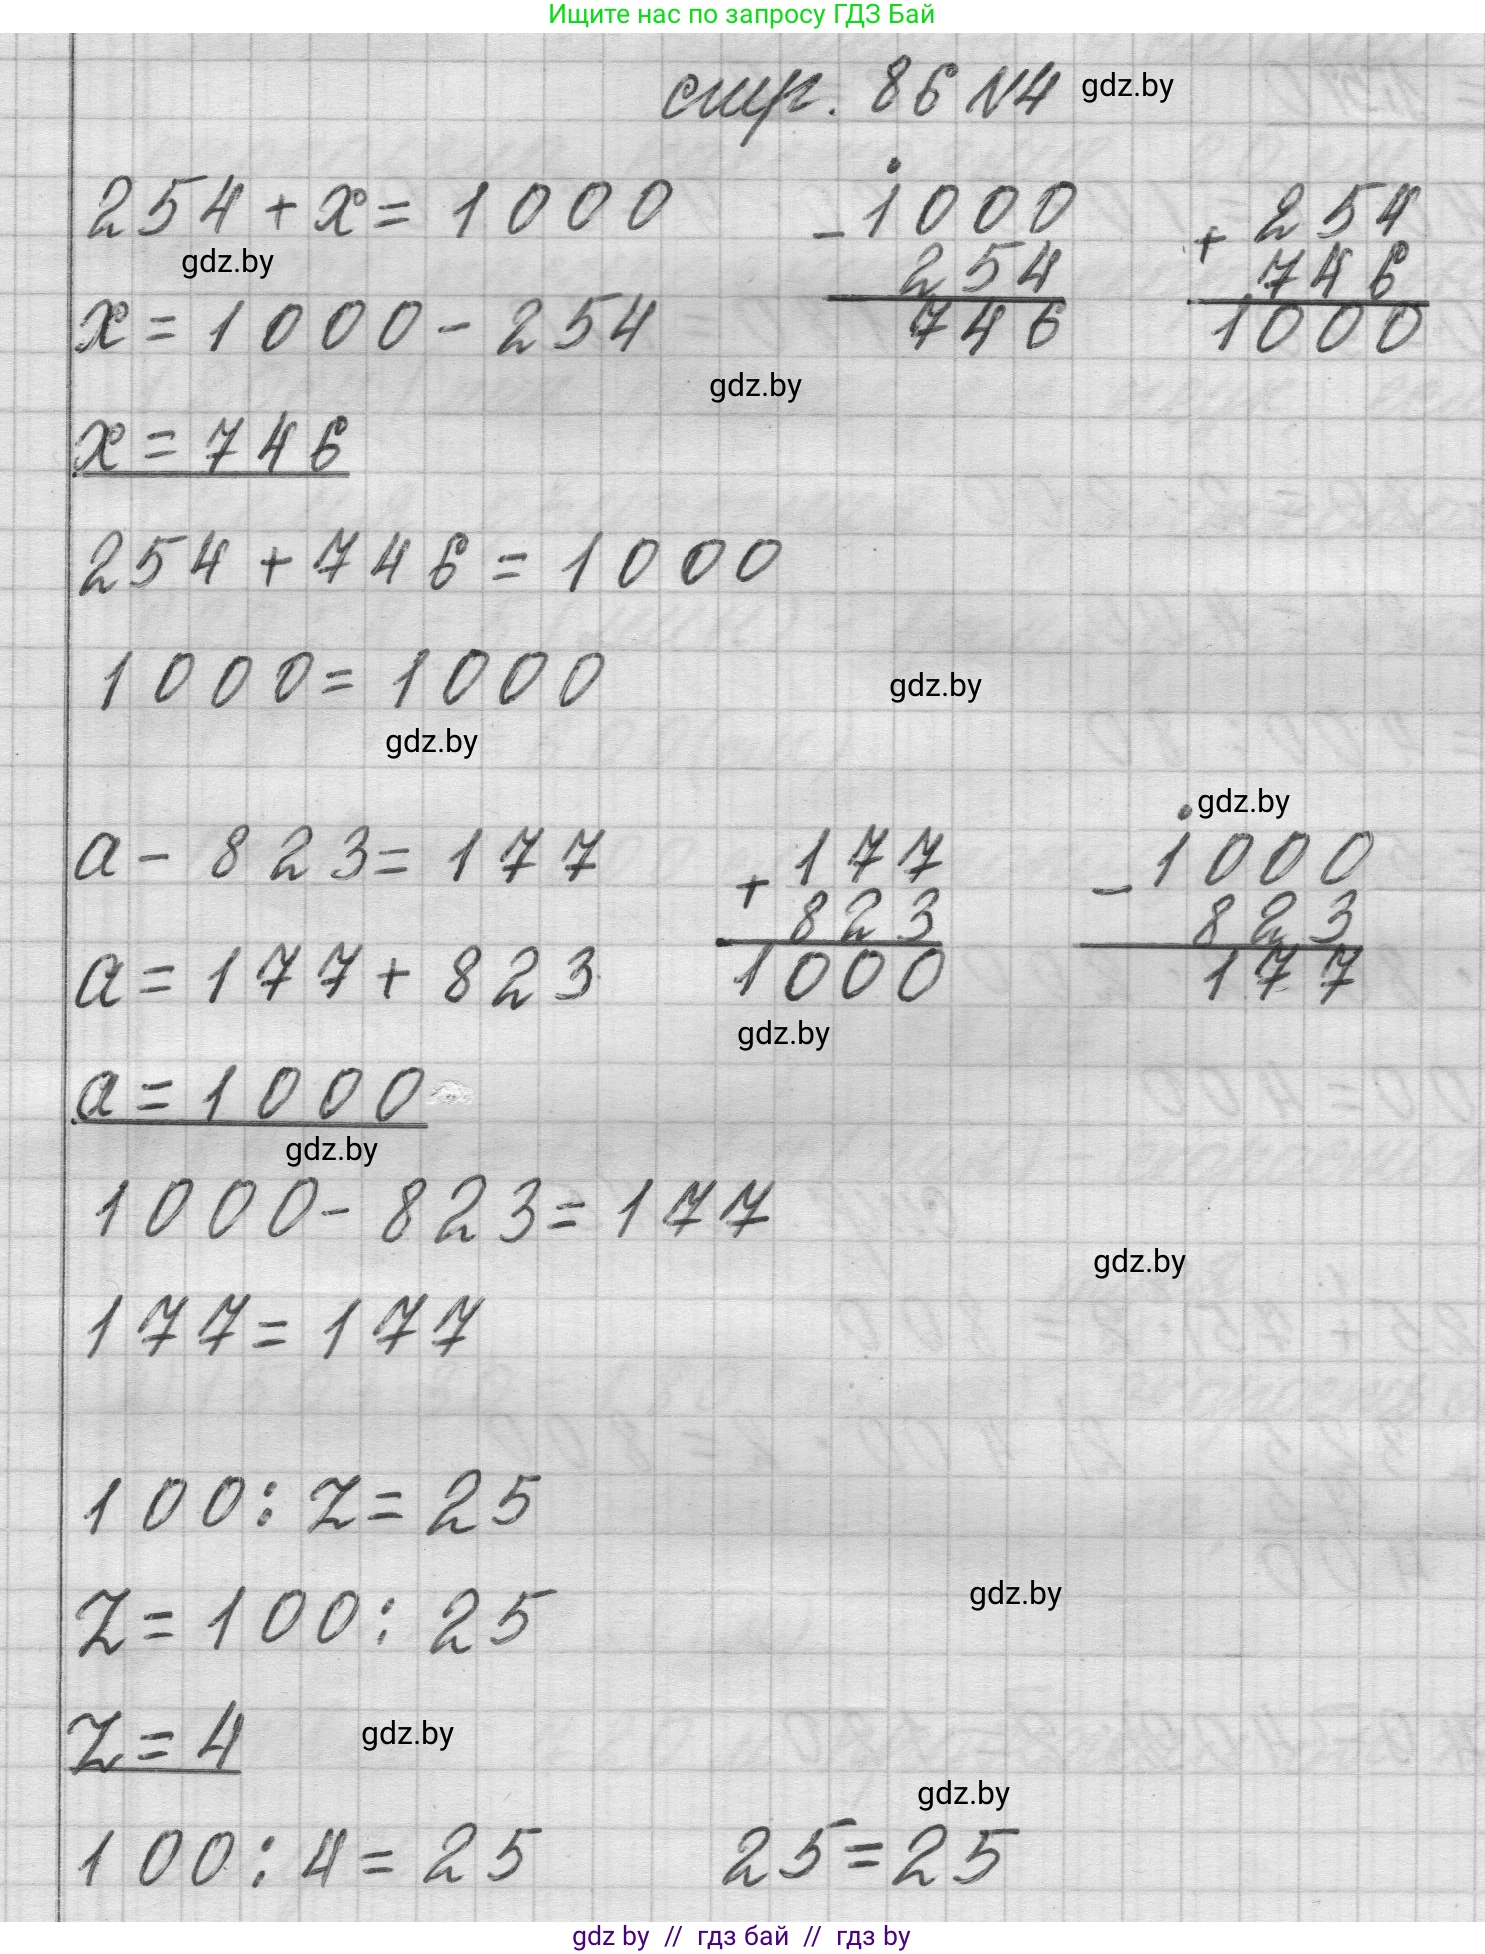 Ищите нас по запросу ГДЗ Бай
стр. 86 №4 gdz.by
254 + x = 1000
- 1000
254
746
+ 254
746
1000
gdz.by
x = 1000 - 254
gdz.by
x = 746
254 + 746 = 1000
1000 = 1000
gdz.by
gdz.by
a - 823 = 177
+ 177
823
1000
gdz.by
- 1000
823
177
a = 177 + 823
gdz.by
a = 1000
gdz.by
1000 - 823 = 177
gdz.by
177 = 177
100 : z = 25
z = 100 : 25
gdz.by
z = 4
gdz.by
gdz.by
100 : 4 = 25 25 = 25
gdz by // гдз бай // гдз by